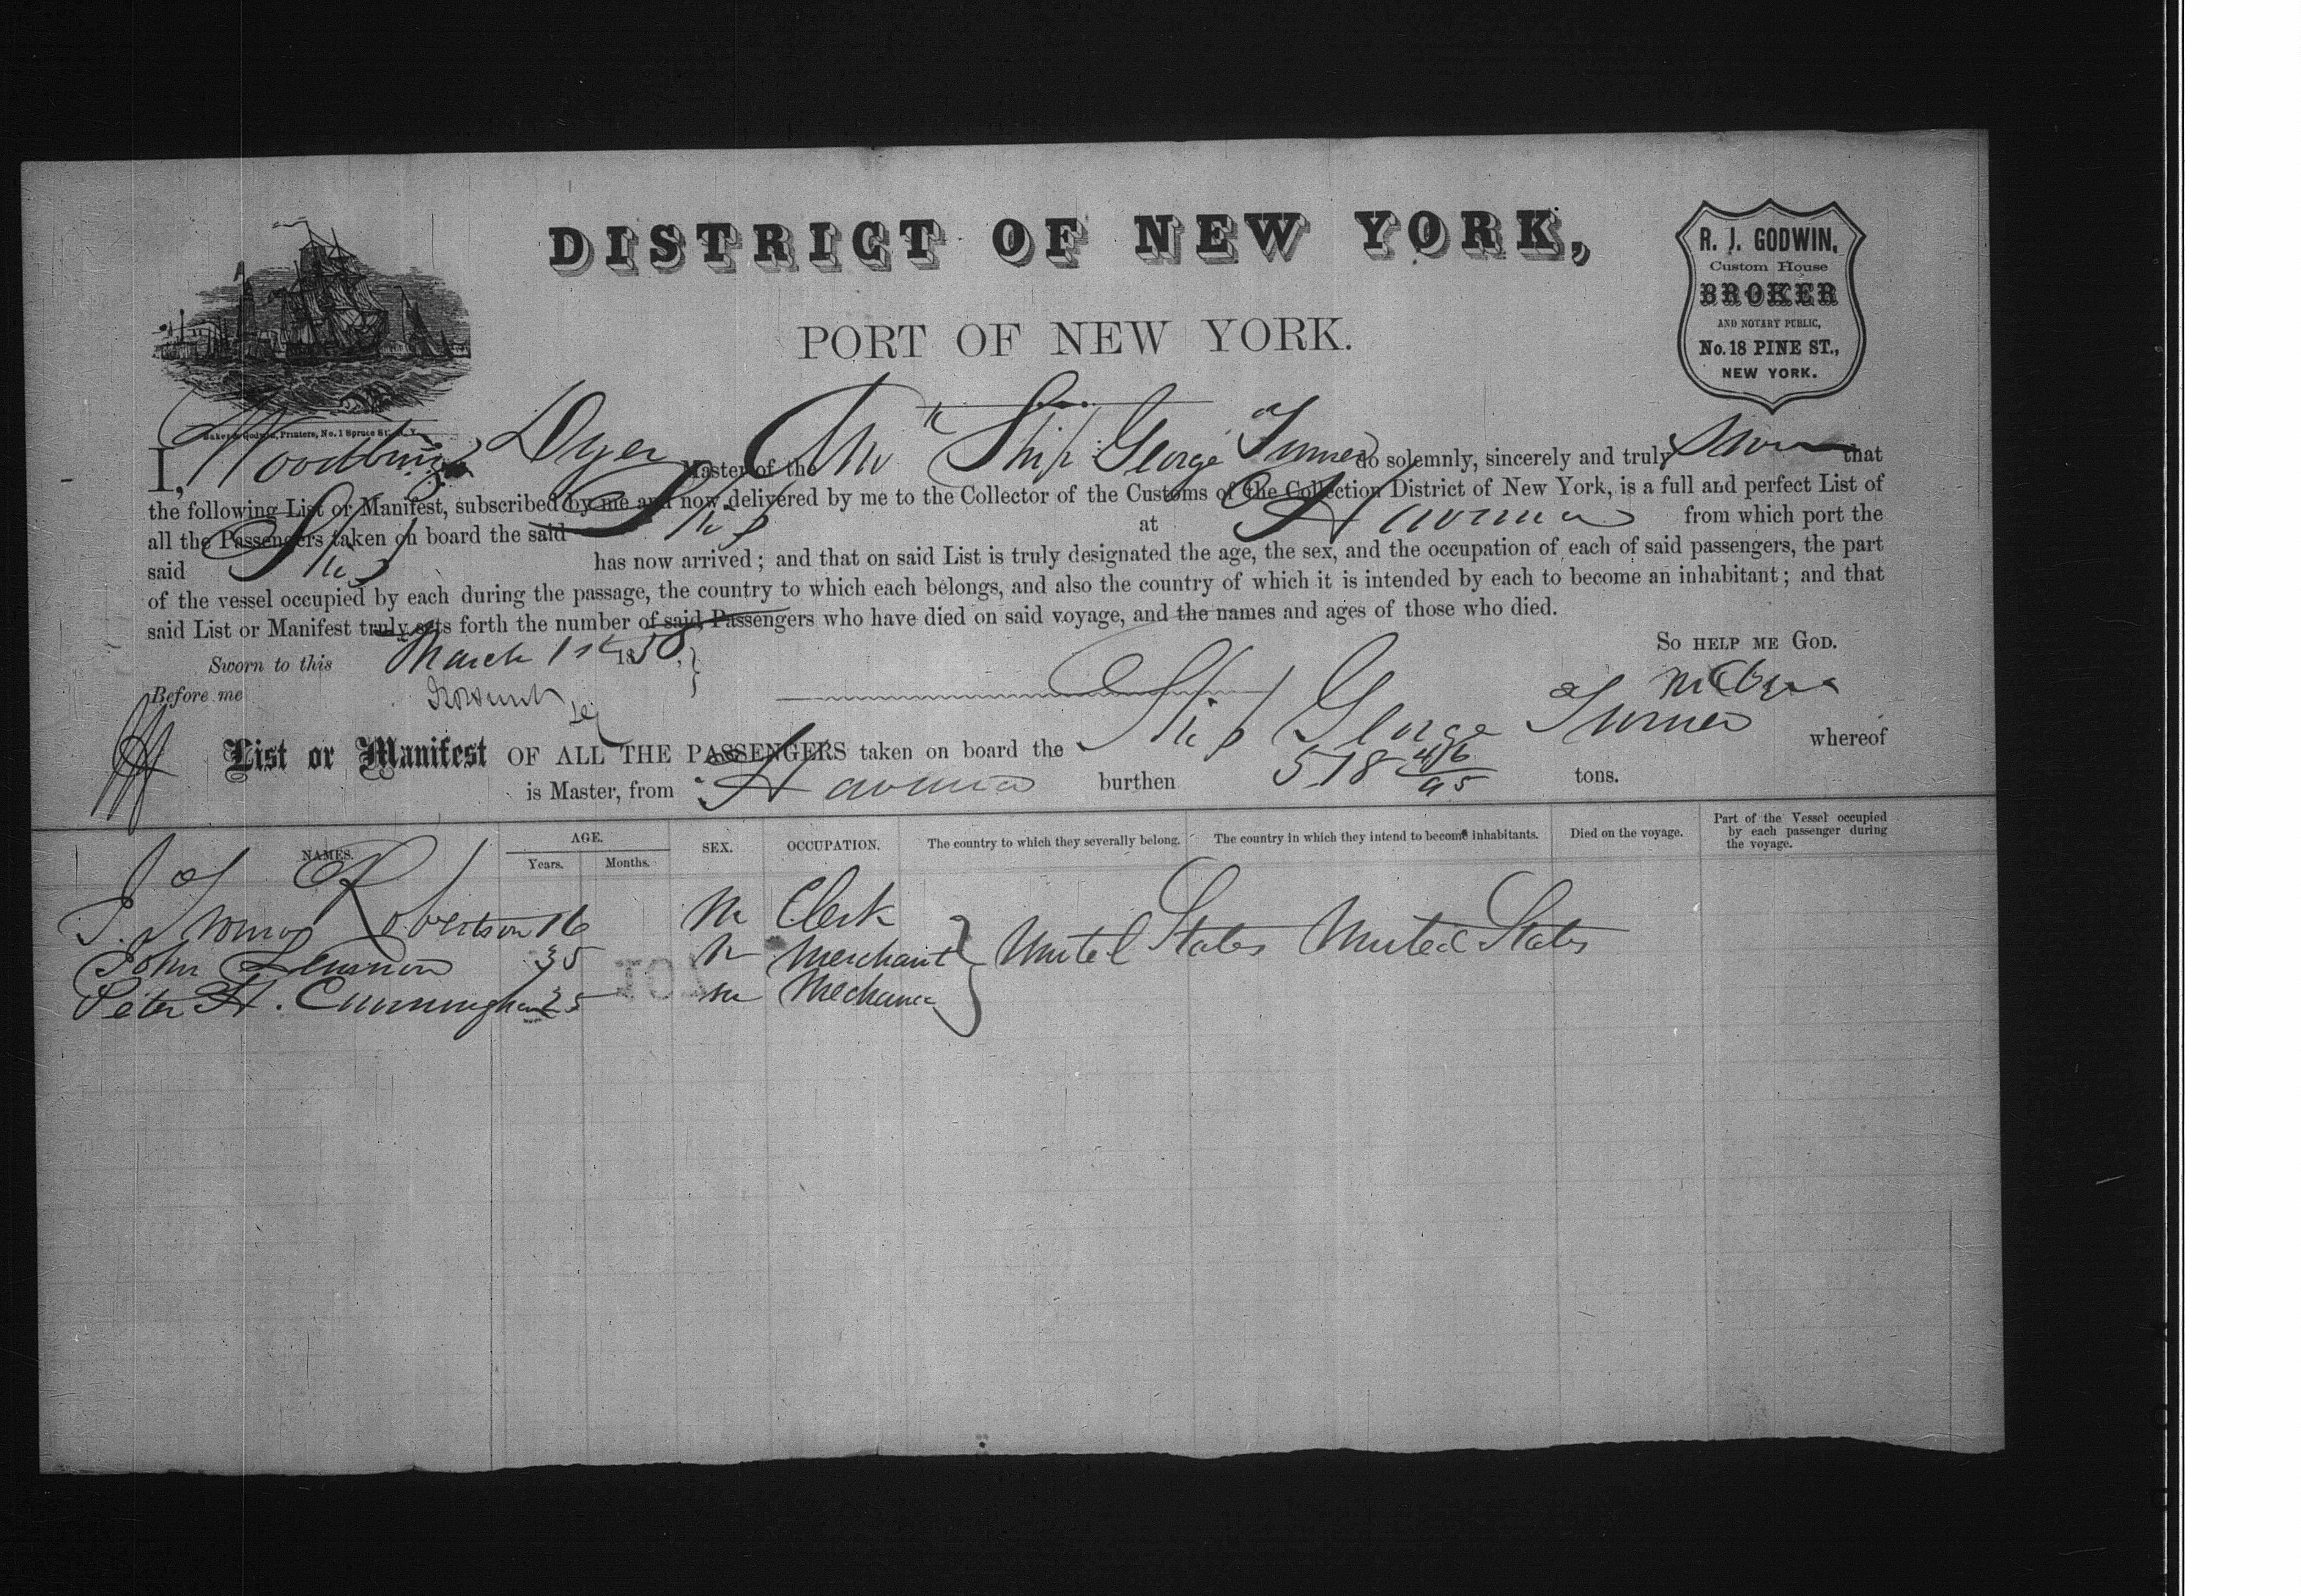 DISTRICT OF NEW YORK,
PORT OF NEW YORK.
R. J. GODWIN,
Custom House
BROKER
AND NOTARY PUBLIC,
No. 18 PINE ST.,
NEW YORK.
Baker & Godwin, Printers, No. 1 Spruce St., N. Y.
I, Woodbury Dyer Master of the Ship George Turner do solemnly, sincerely and truly swear that
the following List or Manifest, subscribed by me and now delivered by me to the Collector of the Customs of the Collection District of New York, is a full and perfect List of
all the Passengers taken on board the said Ship at Havana from which port the
said Ship has now arrived; and that on said List is truly designated the age, the sex, and the occupation of each of said passengers, the part
of the vessel occupied by each during the passage, the country to which each belongs, and also the country of which it is intended by each to become an inhabitant; and that
said List or Manifest truly sets forth the number of said Passengers who have died on said voyage, and the names and ages of those who died.
SO HELP ME GOD.
Sworn to this March 1st 1858.
Before me
List or Manifest OF ALL THE PASSENGERS taken on board the Ship George Turner whereof
is Master, from Havana burthen 518 46/95 tons.
NAMES. AGE. Years. Months. SEX. OCCUPATION. The country to which they severally belong. The country in which they intend to become inhabitants. Died on the voyage. Part of the Vessel occupied by each passenger during the voyage.
Robertson 16 M Clerk
John Lennon 35 M Merchant United States United States
Peter H. Cunningham 25 M Mechanic